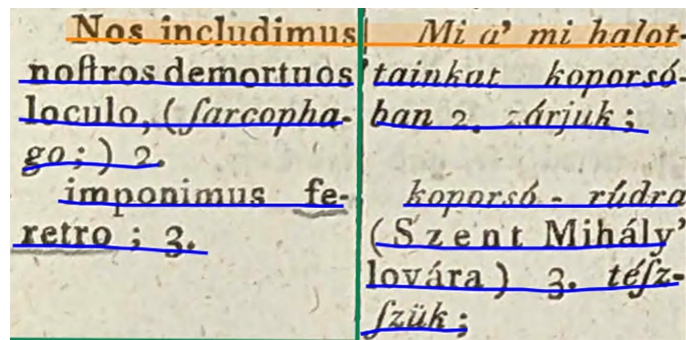 Nos includimus
noſtros demortuos
loculo, (ſarcopha-
go;) 2.
imponimus fe-
retro; 3.
Mi a' mi halot-
tainkat koporsó-
ban 2. zárjuk;
koporsó-rúdra
(Szent Mihály'
lovára) 3. téſz-
ſzük;